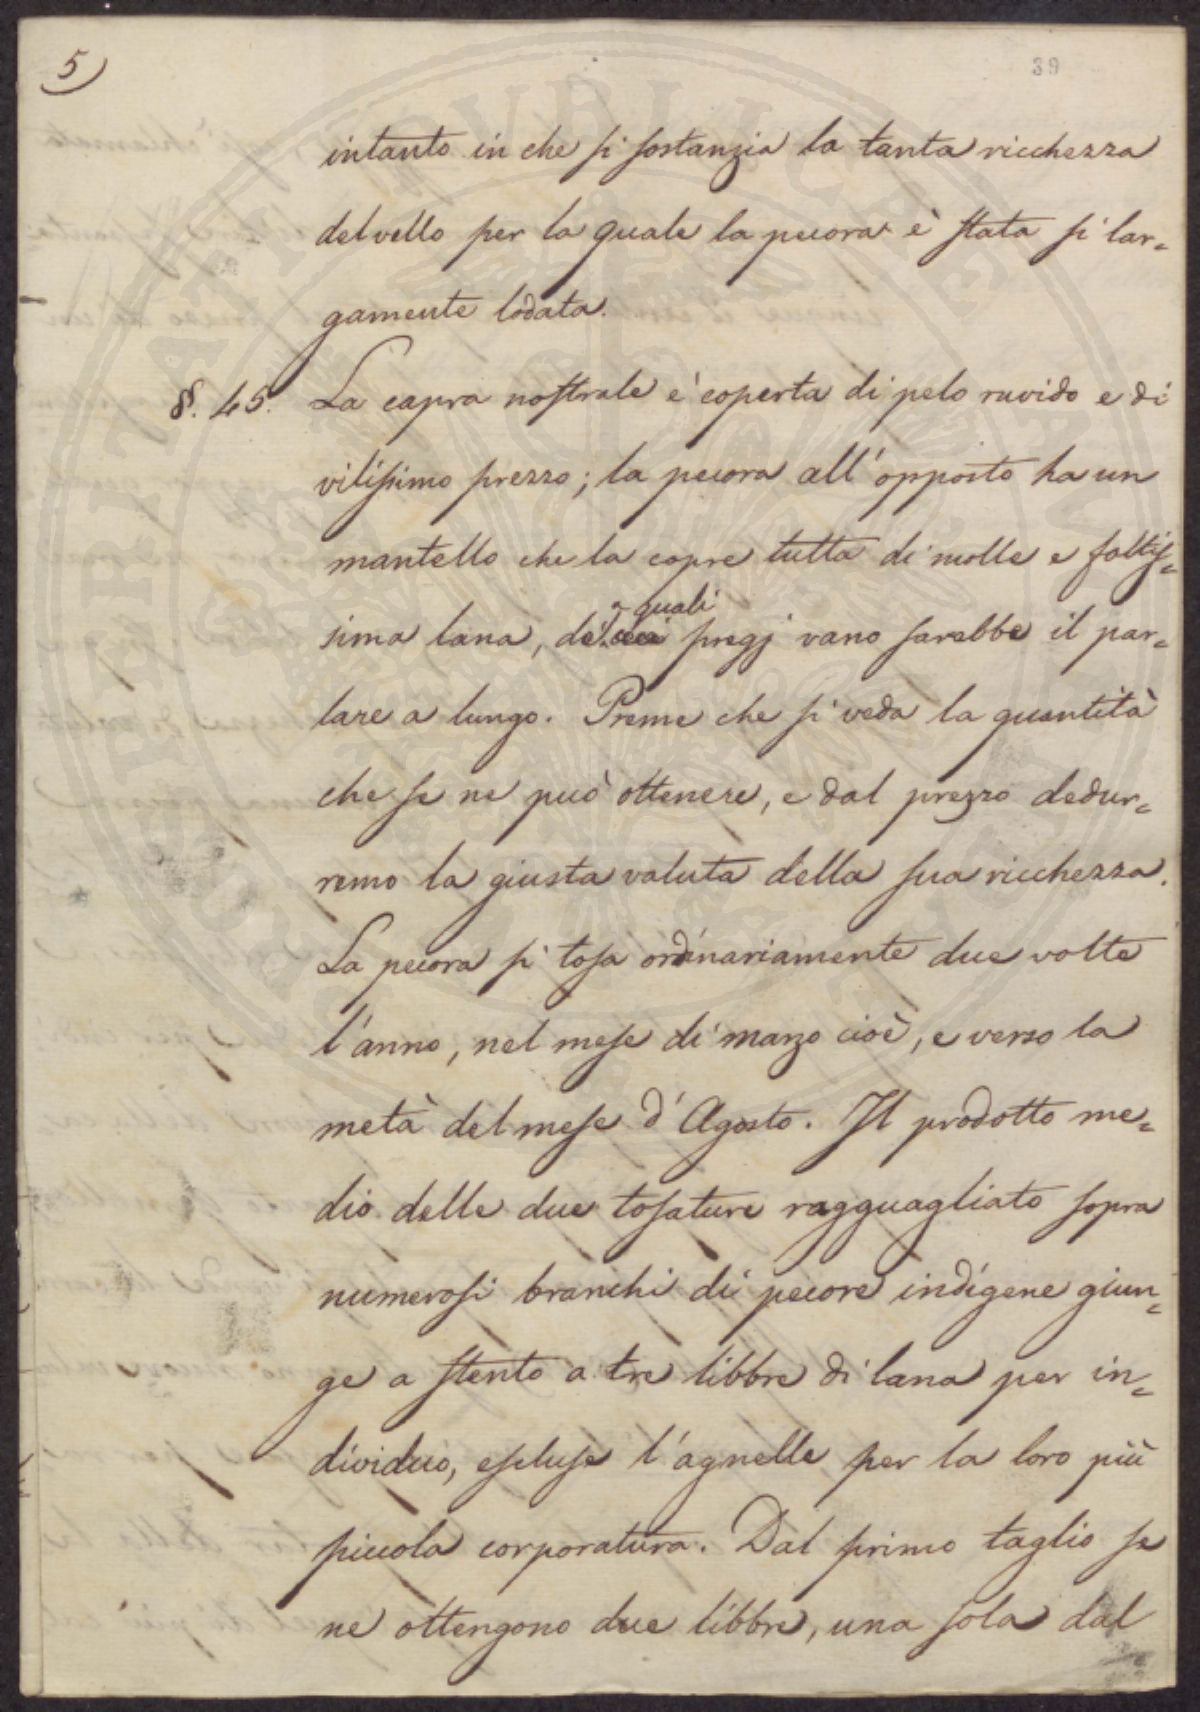 5)
39
intanto in che si sostanzia la tanta ricchezza
del vello per la quale la pecora è stata sì lar=
gamente lodata.
§. 45. La capra nostrale è coperta di pelo ruvido e di
vilissimo prezzo; la pecora all'opposto ha un
mantello che la copre tutta di molle e foltis=
quali
sima lana, dei pregj vano sarebbe il par=
lare a lungo. Preme che si veda la quantità
che se ne può ottenere, e dal prezzo dedur=
remo la giusta valuta della sua ricchezza.
La pecora si tosa ordinariamente due volte
l'anno, nel mese di marzo cioè, e verso la
metà del mese d'Agosto. Il prodotto me=
dio delle due tosature ragguagliato sopra
numerosi branchi di pecore indigene giun=
ge a stento a tre libbre di lana per in=
dividuo, escluse l'agnelle per la loro più
piccola corporatura. Dal primo taglio se
ne ottengono due libbre, una sola dal